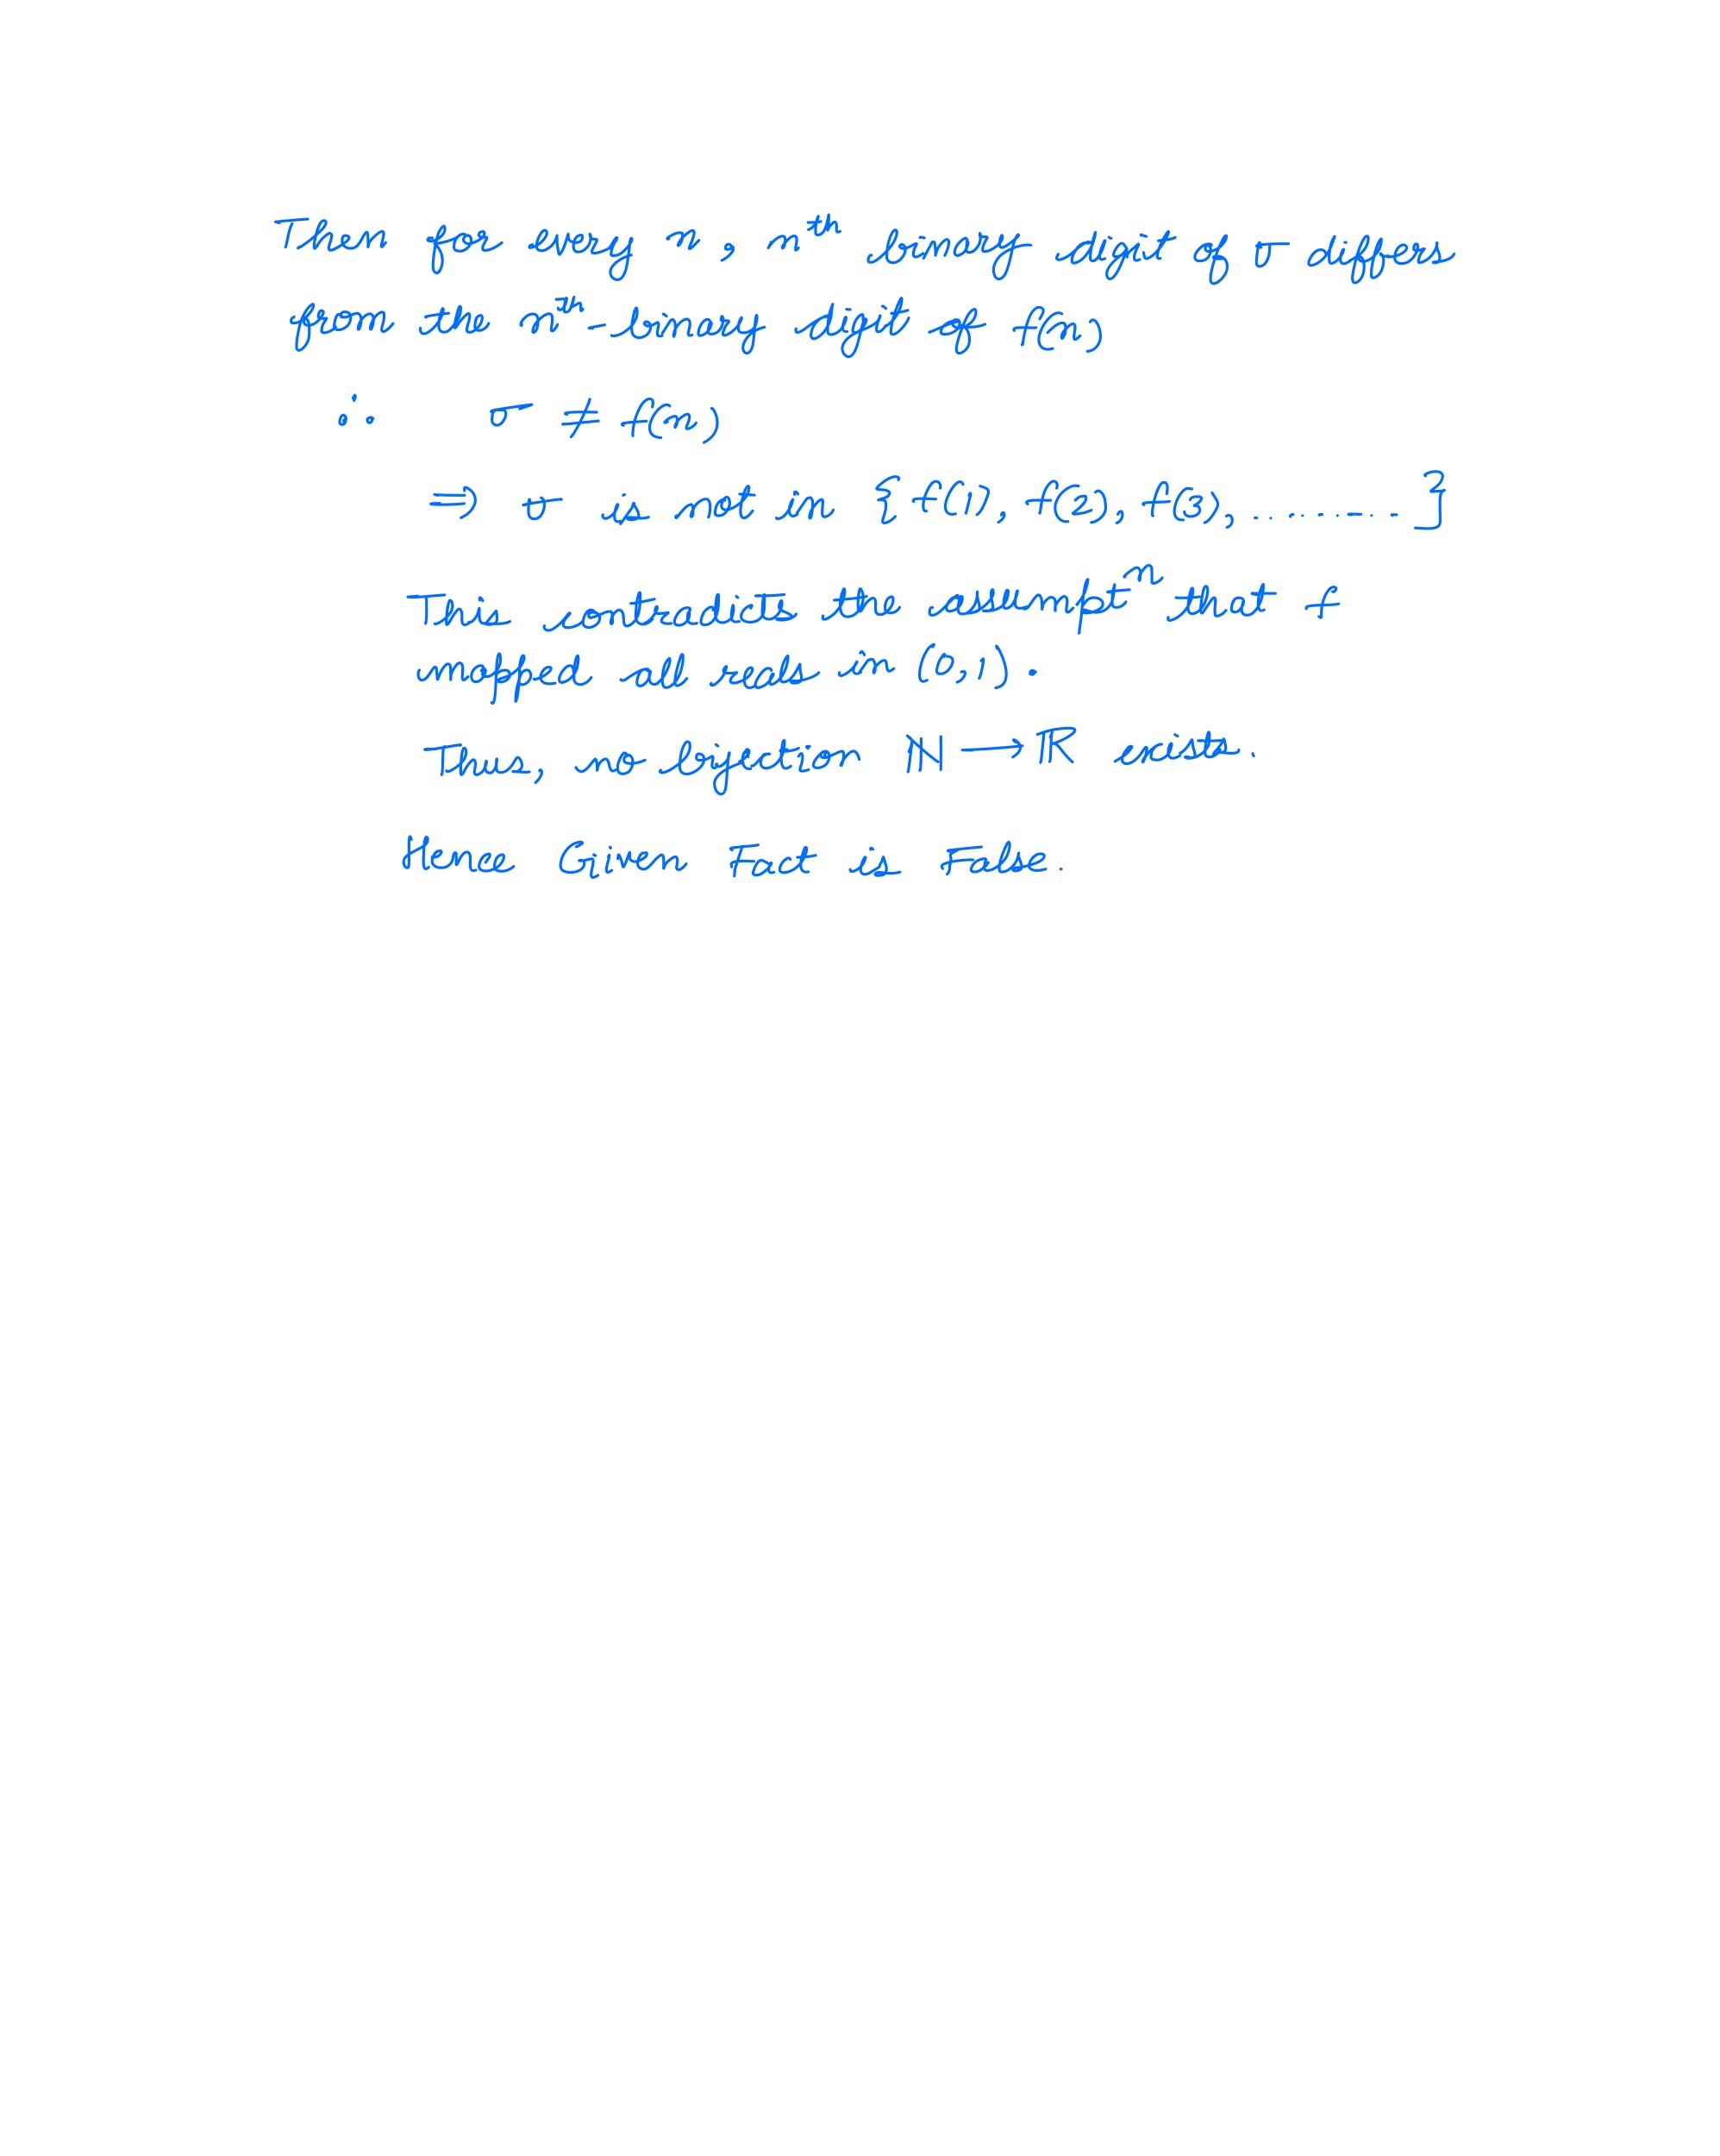 Then for every n, nth binary digit of σ differs
from the nth-binary digit of f(n)
∴ σ ≠ f(n)
⇒ σ is not in {f(1), f(2), f(3), ..........}
This contradicts the assumptⁿ that f
mapped all reals in (0,1).
Thus, no bijection ℕ → ℝ exists.
Hence Given Fact is False.